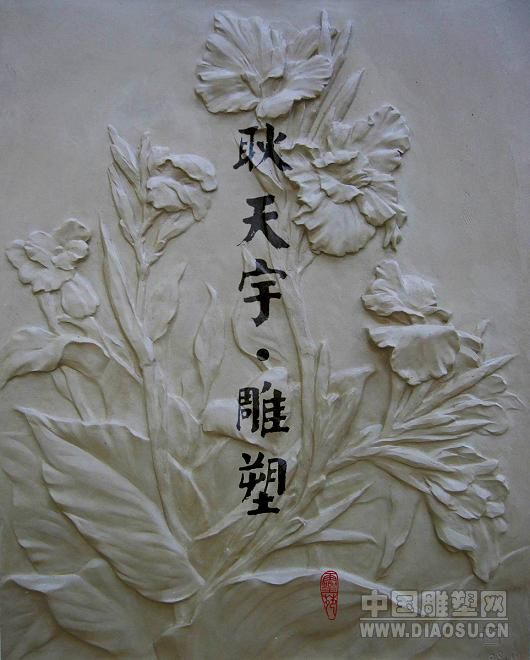 耿天宇·雕塑
中国雕塑网
WWW.DIAOSU.CN